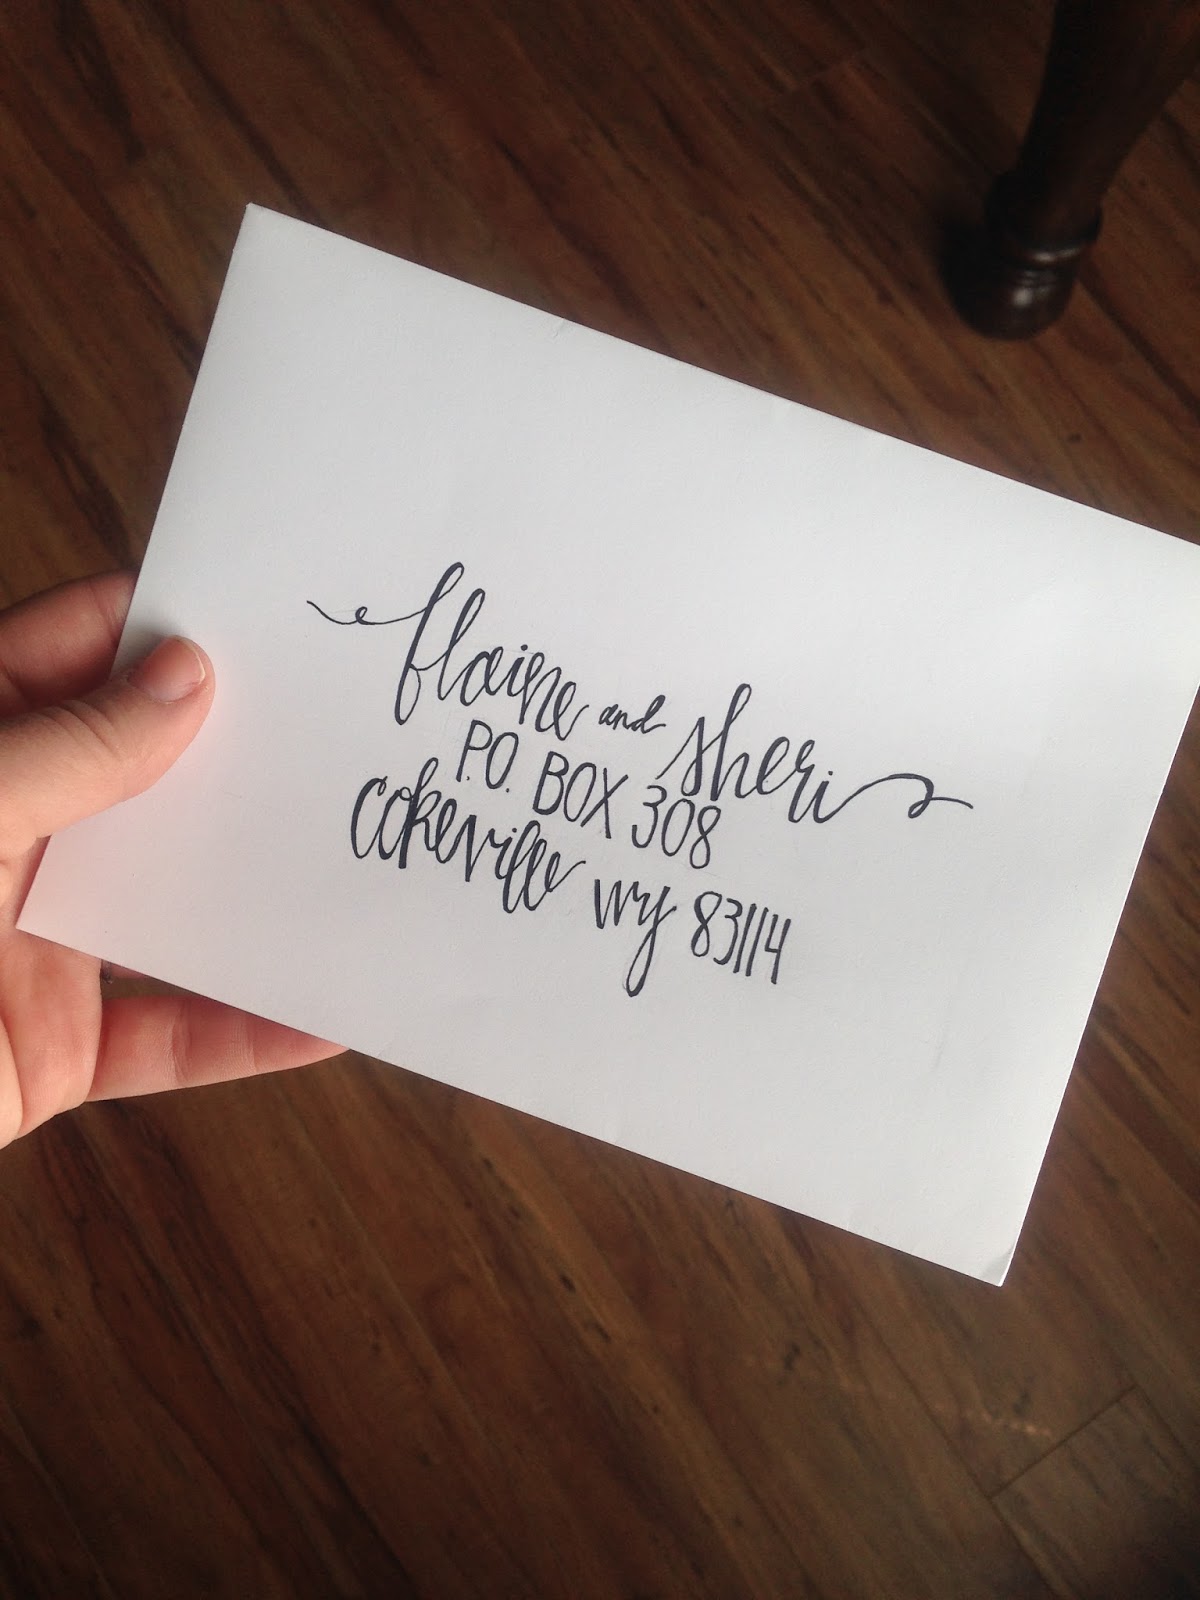 flaine and sheri
P.O. BOX 308
cokeville wy 83114